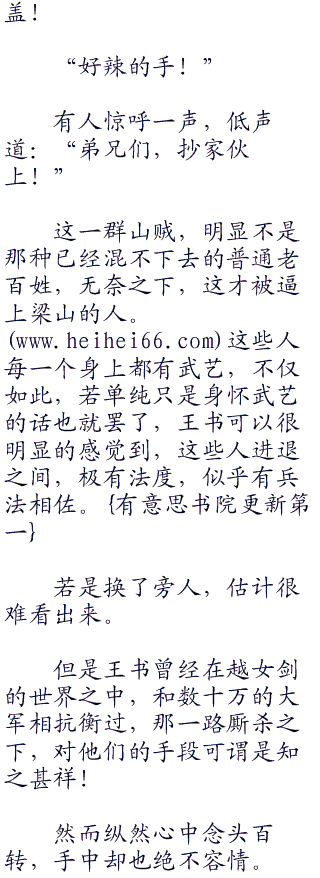 盖！
“好辣的手！”
有人惊呼一声，低声
道：“弟兄们，抄家伙
上！”
这一群山贼，明显不是
那种已经混不下去的普通老
百姓，无奈之下，这才被逼
上梁山的人。
(www.heihei66.com)这些人
每一个身上都有武艺，不仅
如此，若单纯只是身怀武艺
的话也就罢了，王书可以很
明显的感觉到，这些人进退
之间，极有法度，似乎有兵
法相佐。{有意思书院更新第
一}
若是换了旁人，估计很
难看出来。
但是王书曾经在越女剑
的世界之中，和数十万的大
军相抗衡过，那一路厮杀之
下，对他们的手段可谓是知
之甚祥！
然而纵然心中念头百
转，手中却也绝不容情。